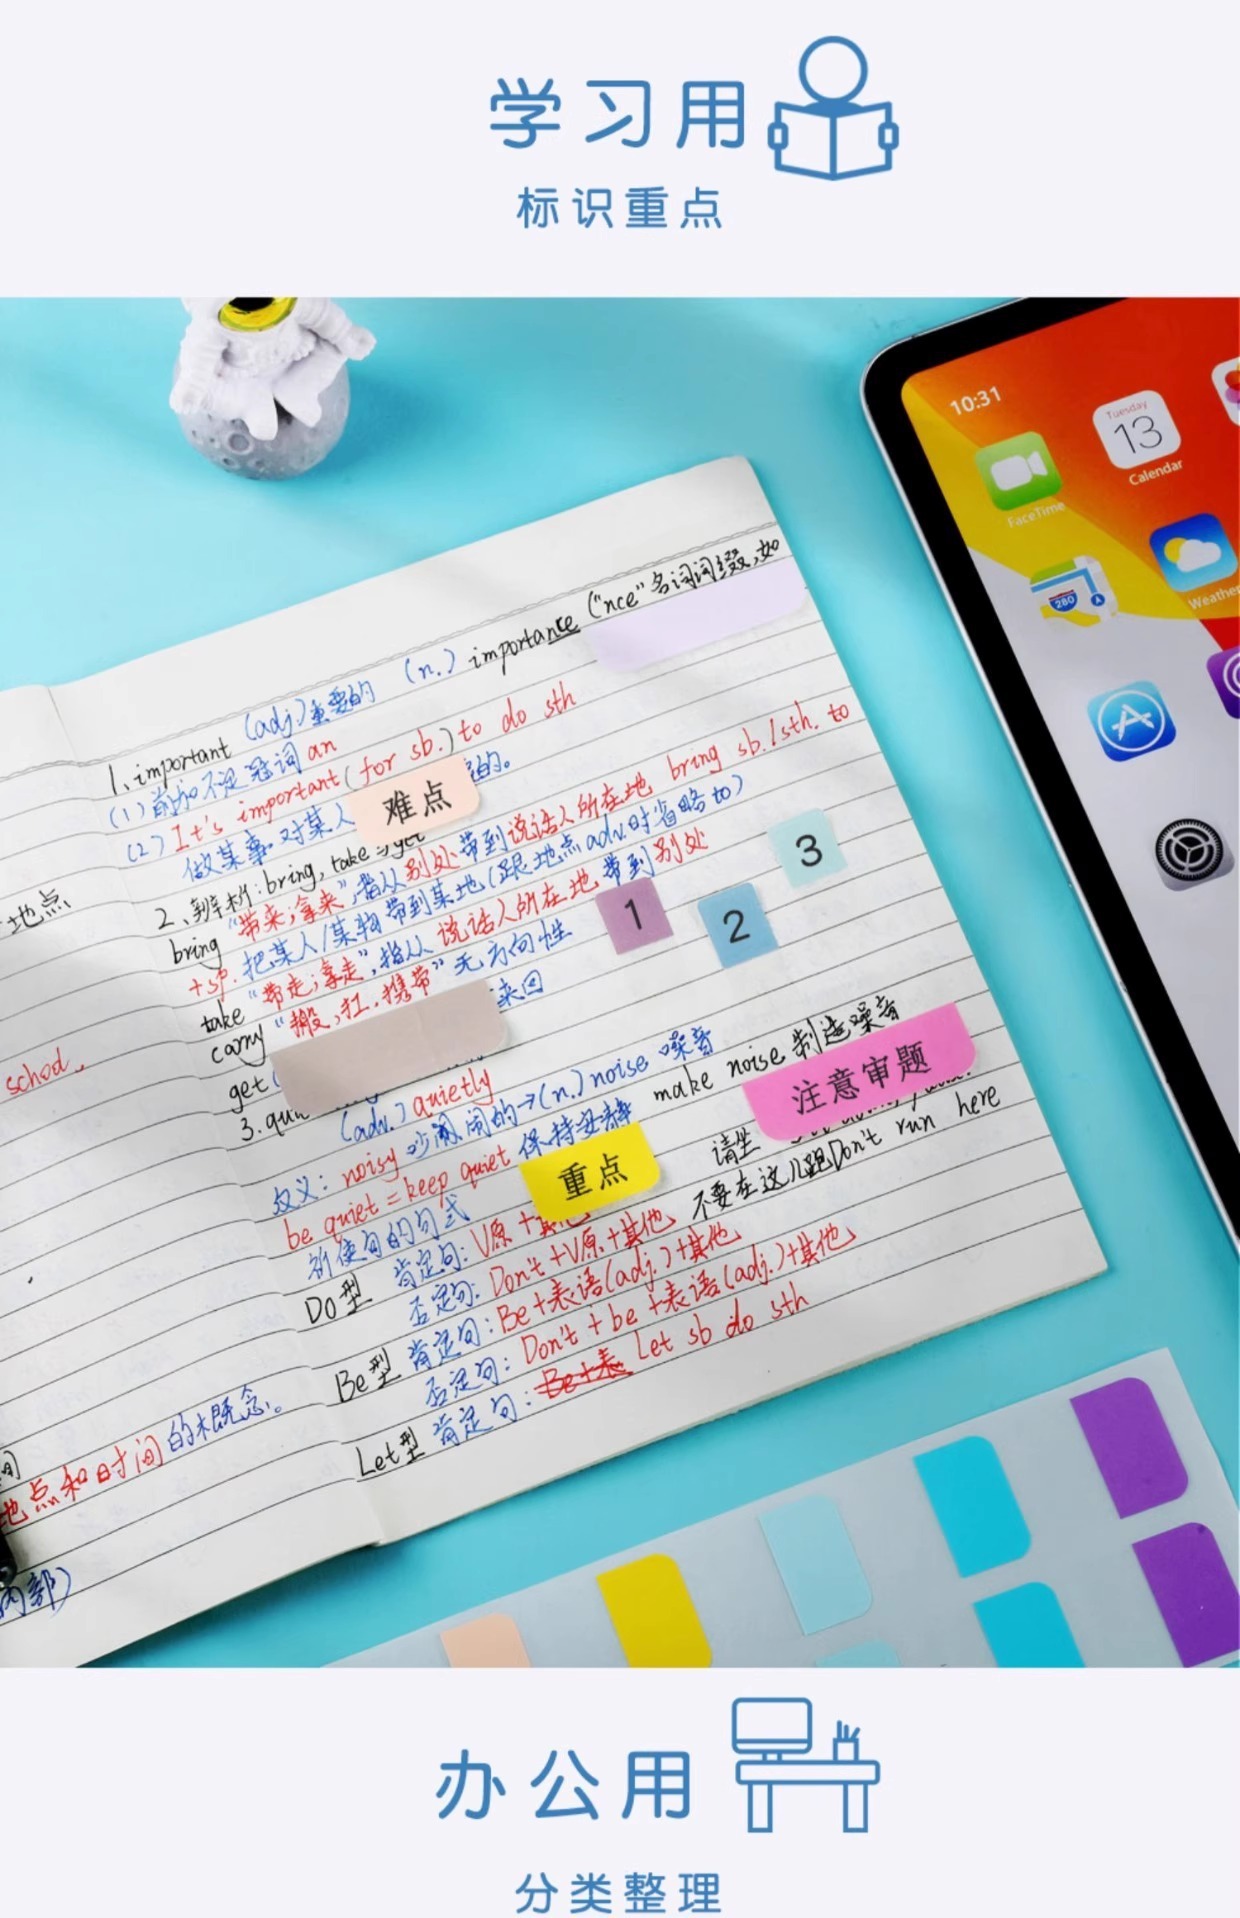 学习用
标识重点
10:31
Tuesday
13
Calendar
FaceTime
280
Weather
1、important (adj.)重要的 (n.) importance ("nce"名词词缀,如
(1)前加不定冠词 an
(2) It's important (for sb.) to do sth
做某事对某人 的。
难点
2、辨析:bring, take与get
bring "带来;拿来",指从别处带到说话人所在地 bring sb./sth. to
+sp. 把某人/某物带到某地(跟地点adv.时省略to)
take "带走;拿走",指从说话人所在地带到别处
carry "搬,扛,携带"无方向性
get( 来回
1
2
3
3.qui
(adv.) quietly
反义: noisy 吵闹的→(n.) noise 噪音 make noise 制造噪音
注意审题
be quiet = keep quiet 保持安静
重点
请坐
祈使句的句式 不要在这儿跑Don't run here
Do型 肯定句: V原 +其他
否定句: Don't+V原+其他
Be型 肯定句: Be+表语(adj.)+其他
否定句: Don't + be +表语(adj.)+其他
Let型 肯定句: Let sb do sth
地点
school.
地点和时间的概念。
内部)
办公用
分类整理